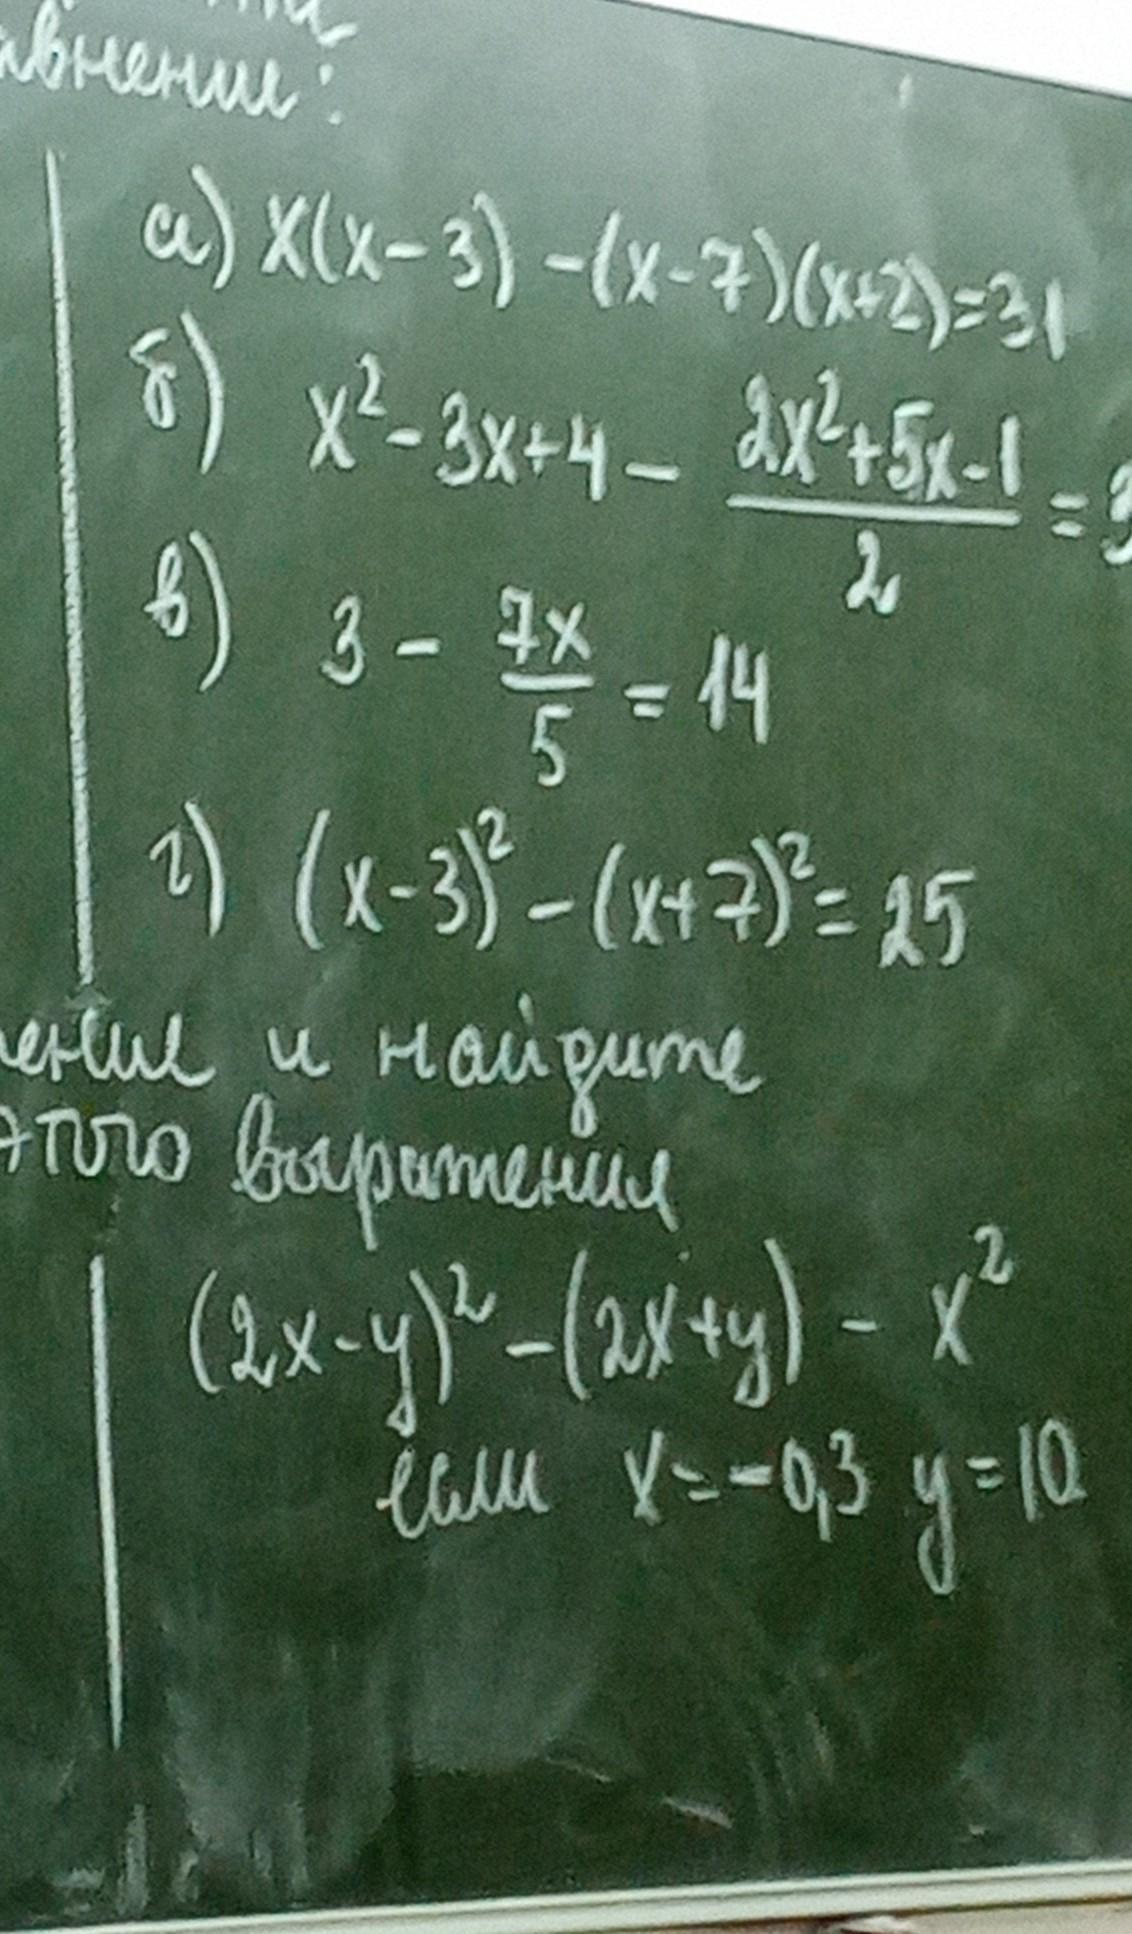 авнения:
а) x(x-3) -(x-7)(x+2)=31
б) x²-3x+4 - (2x²+5x-1)/2 = 3
в) 3 - 7x/5 = 14
г) (x-3)² -(x+7)²= 25
ение и найдите
этого выражения
(2x-y)² -(2x+y) - x²
если x=-0,3 y=10